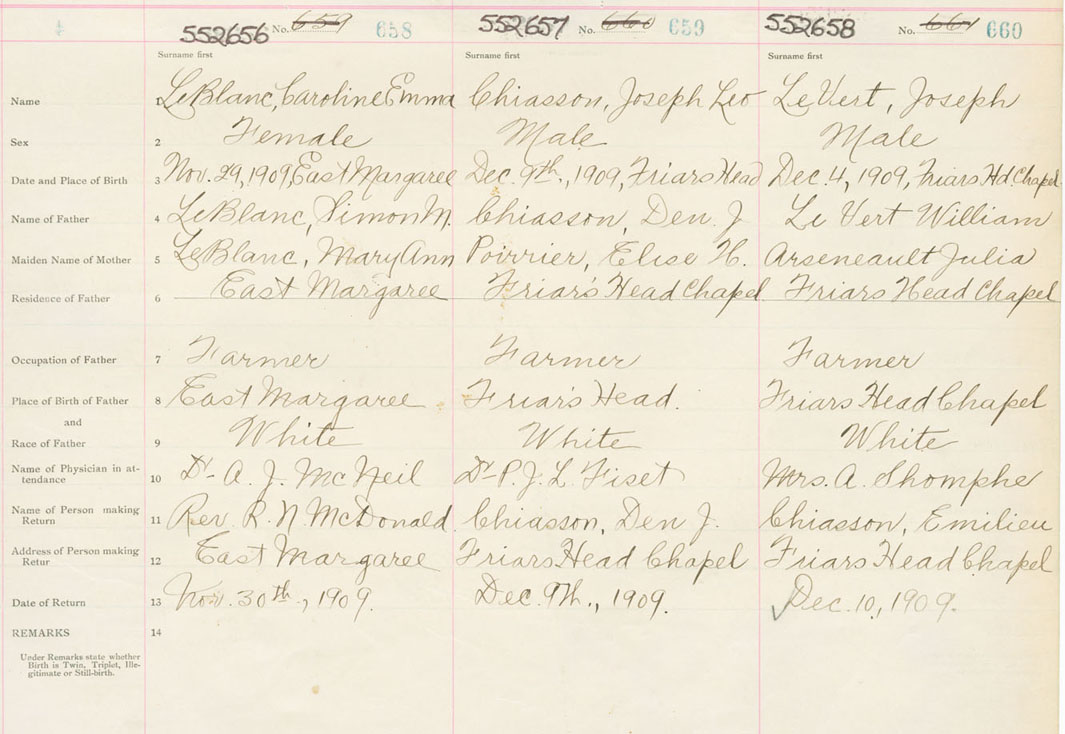 4 552656 No. 659 658 552657 No. 660 659 552658 No. 661 660
Surname first Surname first Surname first
Name 1 LeBlanc, Caroline Emma Chiasson, Joseph Leo LeVert, Joseph
Sex 2 Female Male Male
Date and Place of Birth 3 Nov. 29, 1909, East Margaree Dec. 9th., 1909, Friars Head Dec. 4, 1909, Friars Hd. Chapel
Name of Father 4 LeBlanc, Simon M. Chiasson, Den. J Le Vert William
Maiden Name of Mother 5 LeBlanc, Mary Ann Poirrier, Elise H. Arseneault Julia
Residence of Father 6 East Margaree Friar's Head Chapel Friars Head Chapel
Occupation of Father 7 Farmer Farmer Farmer
Place of Birth of Father 8 East Margaree Friar's Head. Friars Head Chapel
and
Race of Father 9 White White White
Name of Physician in at-
tendance 10 Dr. A. J. McNeil Dr. P. J. L. Fiset Mrs. A. Shomphe
Name of Person making
Return 11 Rev. R. N. McDonald Chiasson, Den J. Chiasson, Emilieu
Address of Person making
Retur 12 East Margaree Friars Head Chapel Friars Head Chapel
Date of Return 13 Nov. 30th., 1909. Dec. 9th., 1909. Dec. 10, 1909.
REMARKS 14
Under Remarks state whether
Birth is Twin, Triplet, Ille-
gitimate or Still-birth.